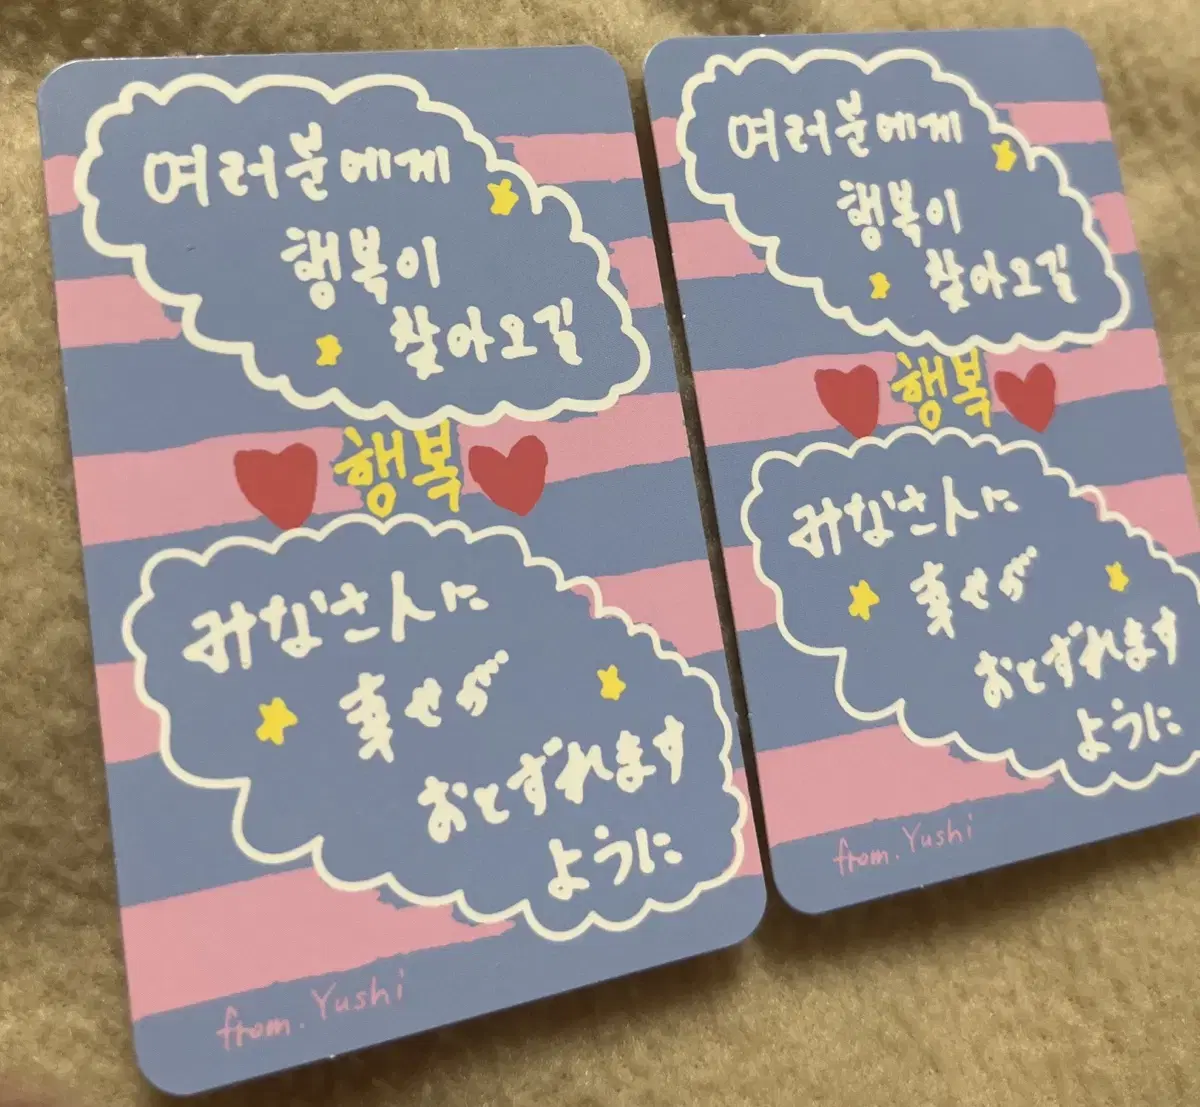 여러분에게
행복이
찾아오길
행복
みなさんに
幸せが
おとずれます
ように
from. Yushi
여러분에게
행복이
찾아오길
행복
みなさんに
幸せが
おとずれます
ように
from. Yushi